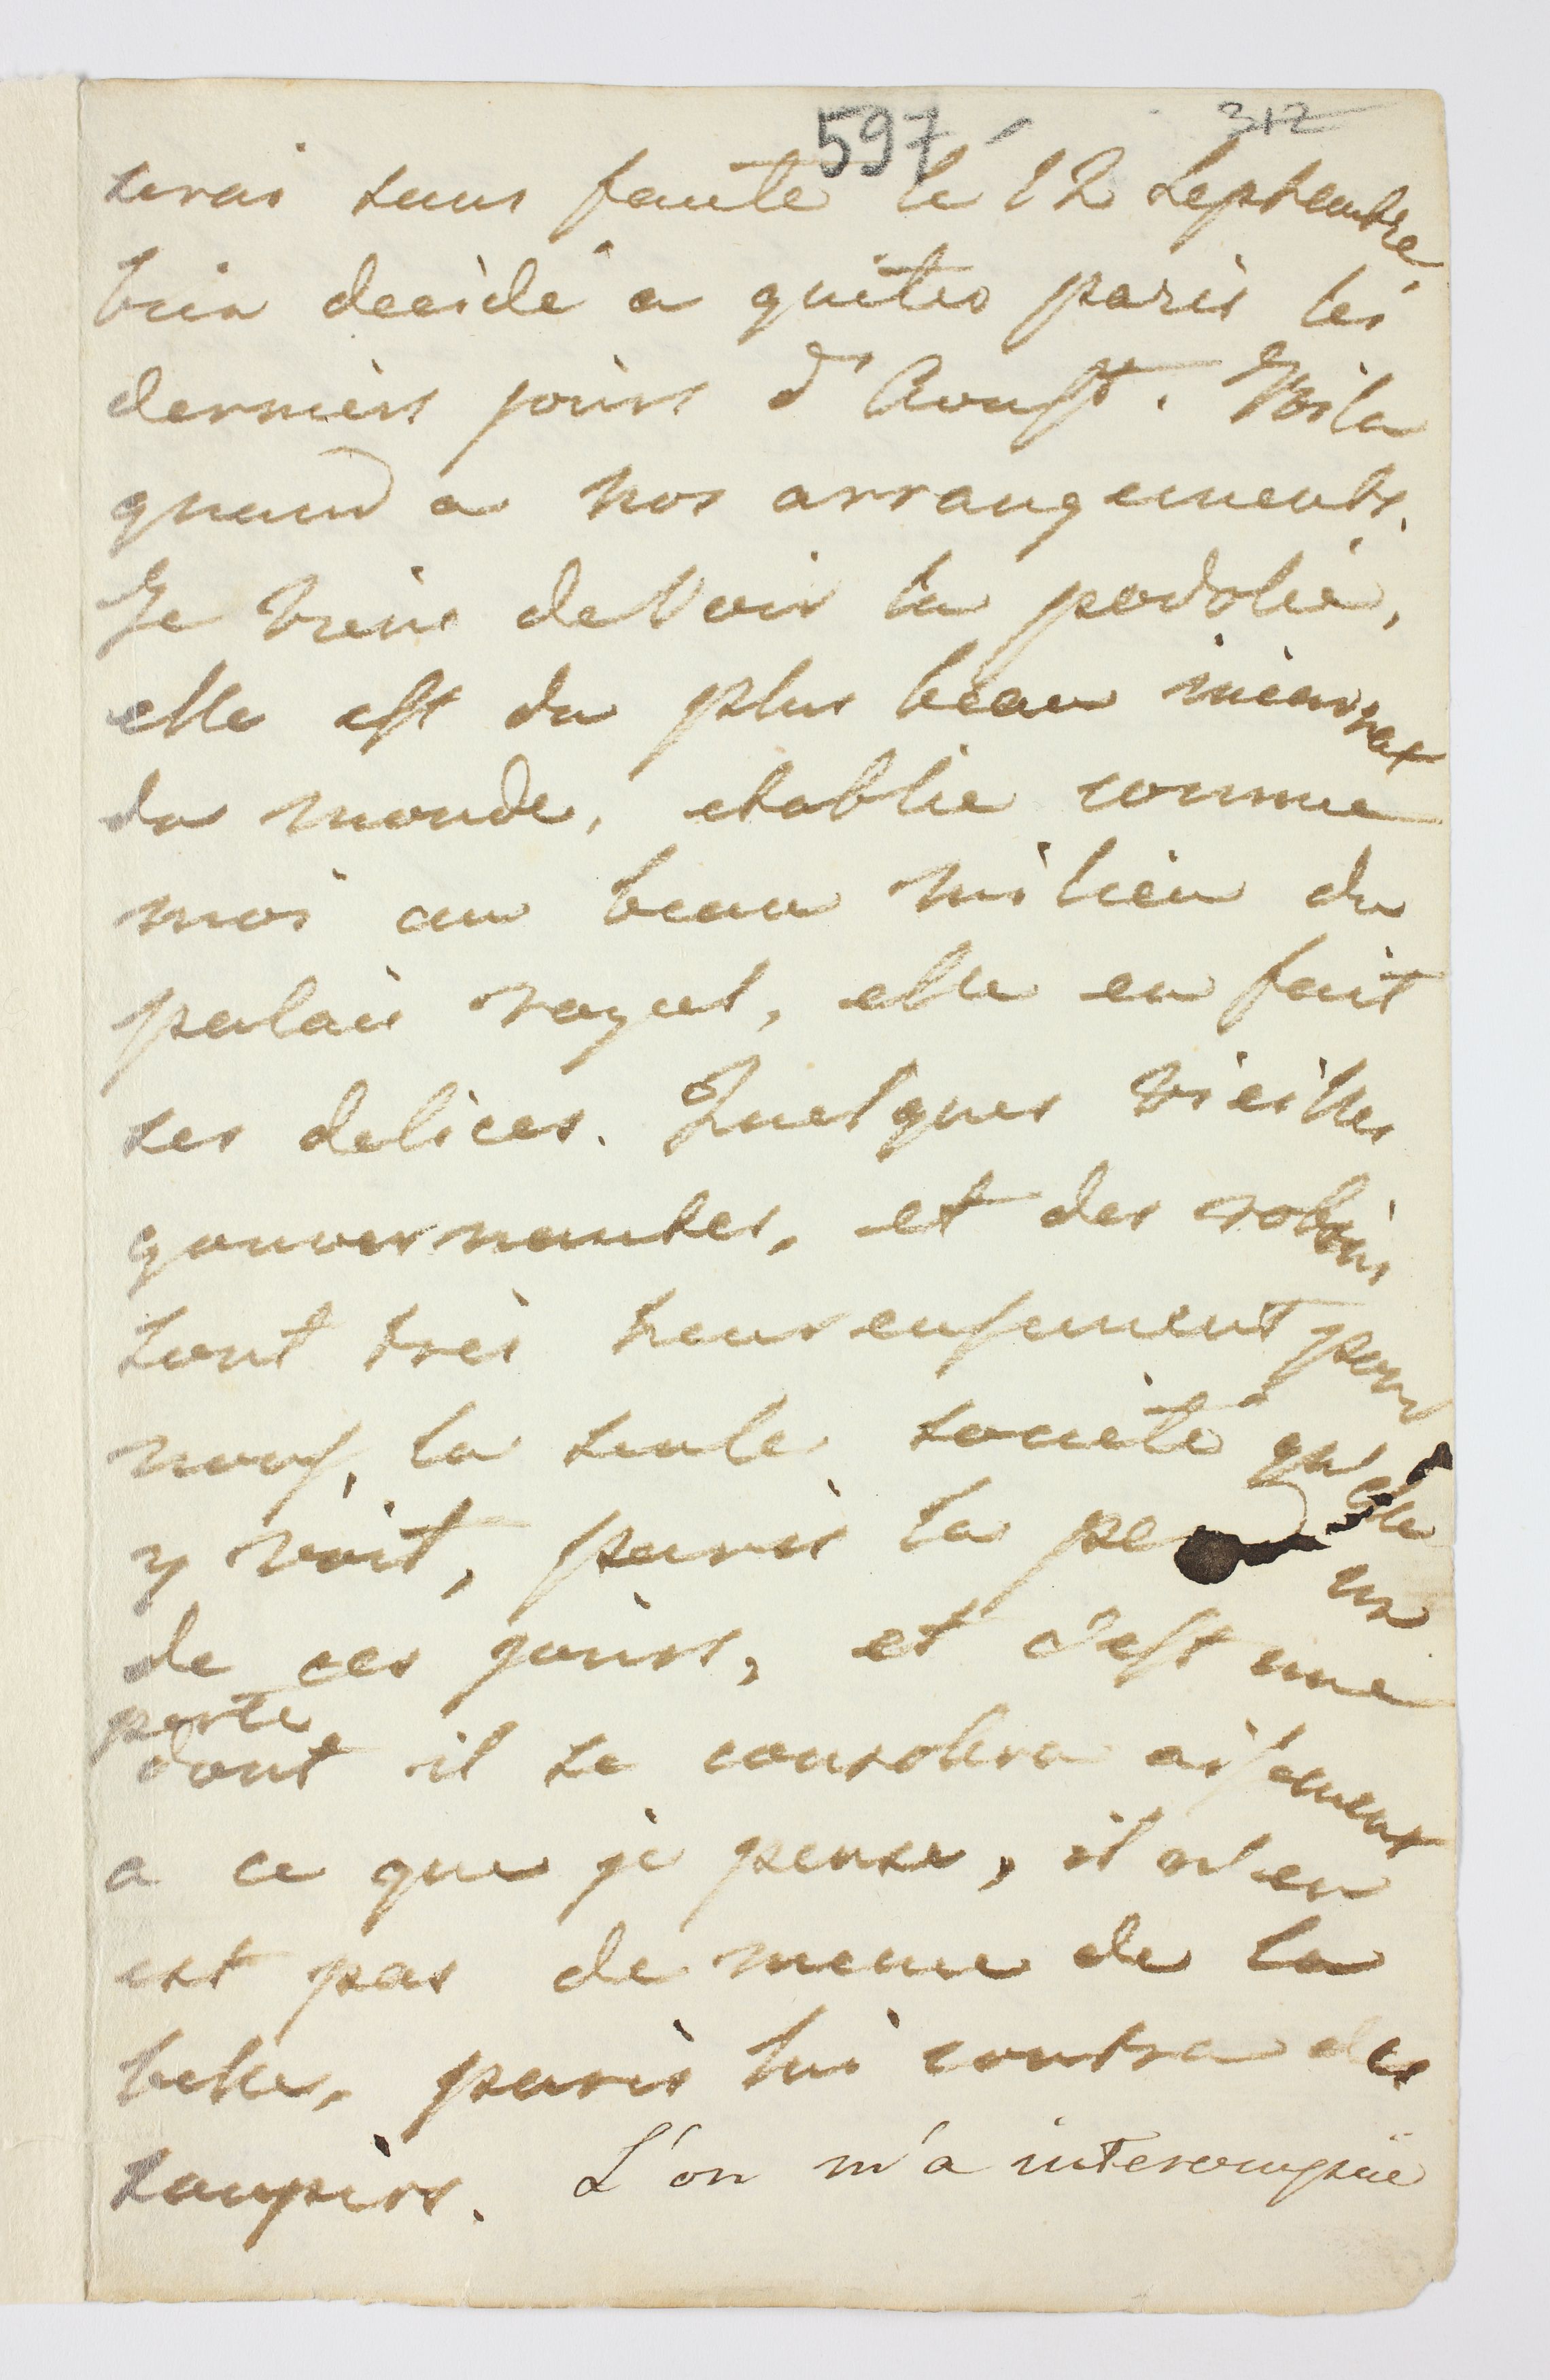 597 312
serai sans faute le 12 septembre,
bien decidé a quiter paris les
derniers jours d'Aoust. Voila
quand a nos arrangements.
Je viens de voir la podolie,
elle est du plus beau
du monde, etablie comme
moi au beau milieu du
palais royal, elle en fait
ses delices. Quelques vieilles
gouvernantes, et des robins
sont très heureusement pour
nous, la seule societé qu'elle
y voit, paris la perd un
de ces jours, et c'est une
perte
dont il se consolera aisement
a ce que je pense, il n'en
est pas de meme de la
belle, paris lui coutra des
soupirs. L'on m'a interompüe